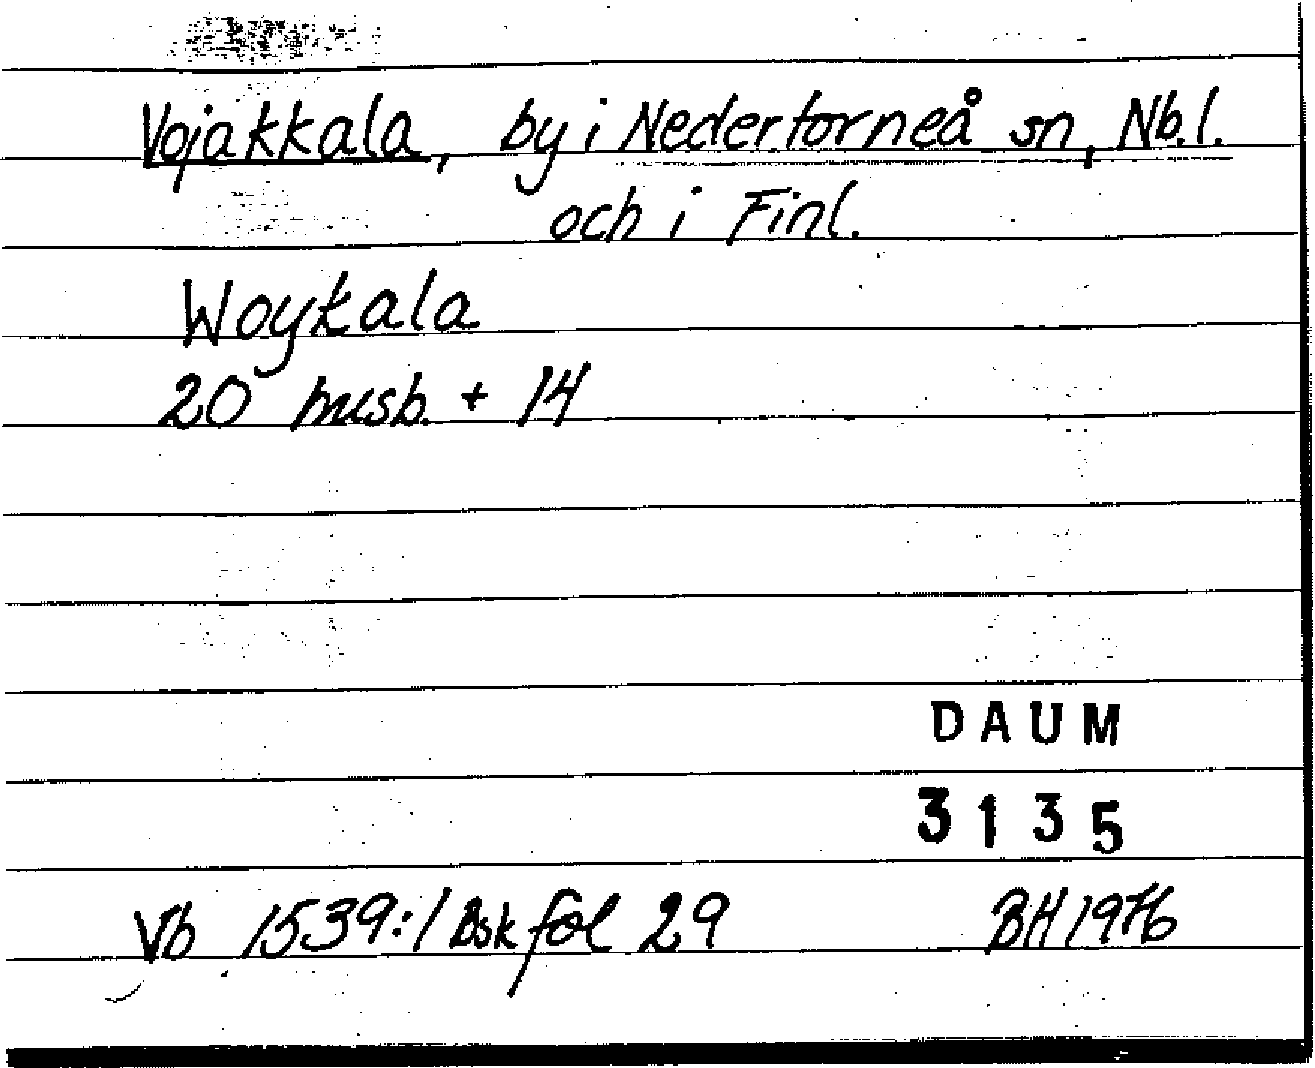 Vojakkala, by i Nedertorneå sn, Nb.l.
och i Finl.
Woykala
20 husb. + 14
DAUM
3135
Vb 1539:1 Bsk fol 29 BH 1976